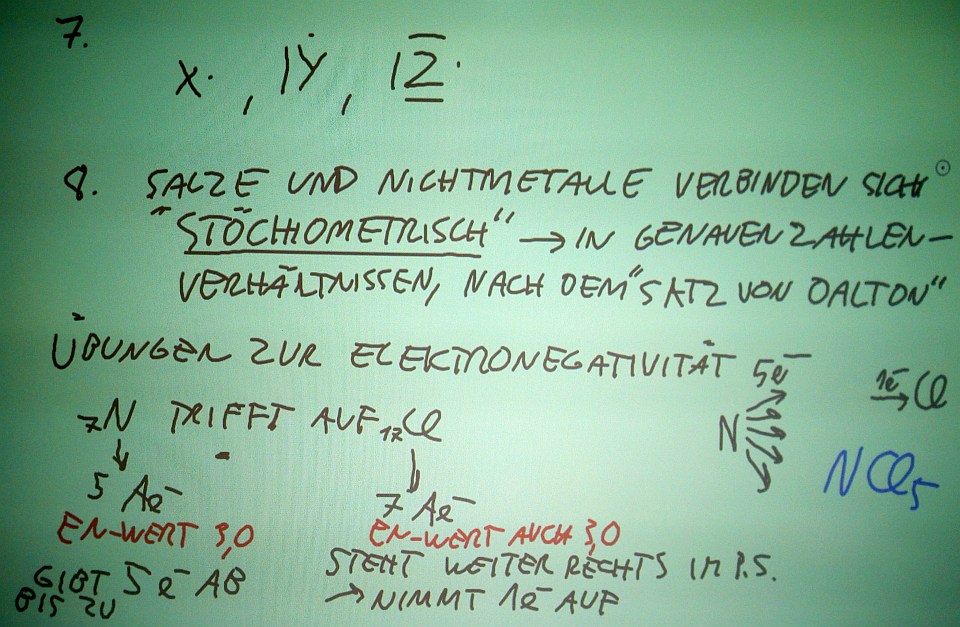 7.
X· , |Ẏ , |Z̲̅·
8. SALZE UND NICHTMETALLE VERBINDEN SICH
"STÖCHIOMETRISCH" → IN GENAUEN ZAHLEN-
VERHÄLTNISSEN, NACH DEM "SATZ VON DALTON"
ÜBUNGEN ZUR ELEKTRONEGATIVITÄT
5e⁻
1e⁻ → Cl
₇N TRIFFT AUF ₁₇Cl
N
NCl₅
5 Ae⁻
7 Ae⁻
EN-WERT 3,0
EN-WERT AUCH 3,0
GIBT 5 e⁻ AB
BIS ZU
STEHT WEITER RECHTS IM P.S.
→ NIMMT 1e⁻ AUF